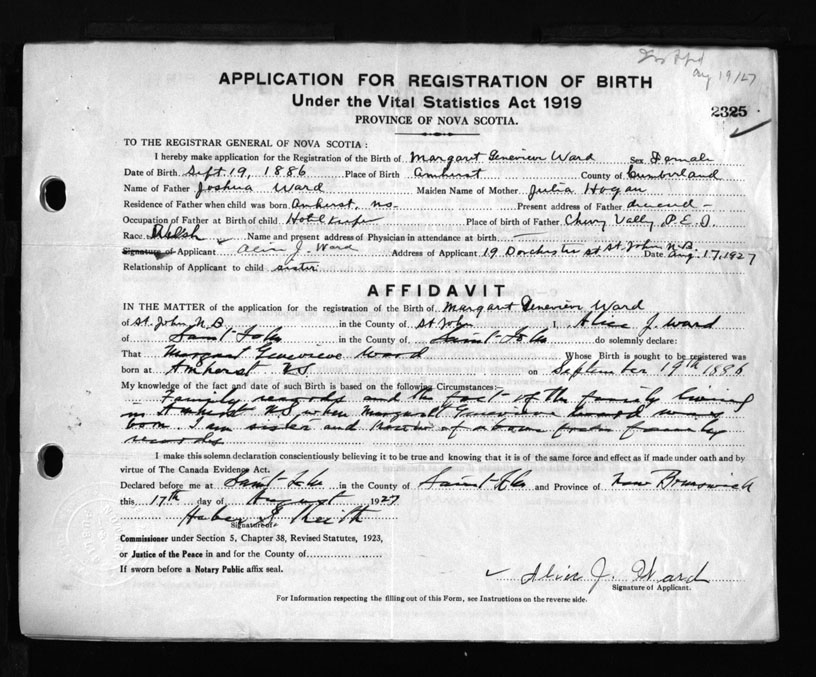 Aug 19/27
APPLICATION FOR REGISTRATION OF BIRTH
Under the Vital Statistics Act 1919
2325
PROVINCE OF NOVA SCOTIA.
TO THE REGISTRAR GENERAL OF NOVA SCOTIA :
I hereby make application for the Registration of the Birth of Margaret Genevieve Ward Sex Female
Date of Birth Sept. 19, 1886 Place of Birth Amherst County of Cumberland
Name of Father Joshua Ward Maiden Name of Mother Julia Hogan
Residence of Father when child was born Amherst, NS- Present address of Father deceased -
Occupation of Father at Birth of child Hotel keeper Place of birth of Father Cherry Vally P.E.I.
Race Welsh Name and present address of Physician in attendance at birth —
Signature of Applicant Alice J. Ward Address of Applicant 19 Dorchester st St. John N.B. Date Aug. 17, 1927
Relationship of Applicant to child sister
AFFIDAVIT
IN THE MATTER of the application for the registration of the Birth of Margaret Genevieve Ward
of St. John N.B. in the County of St John I, Alice J. Ward
of Saint John in the County of Saint John do solemnly declare:
That Margaret Genevieve Ward Whose Birth is sought to be registered was
born at Amherst NS on September 19th 1886
My knowledge of the fact and date of such Birth is based on the following Circumstances:-
Family records and the fact of the family living
in Amherst NS when Margaret Genevieve Ward was
born. I am sister and know of above from family
records
I make this solemn declaration conscientiously believing it to be true and knowing that it is of the same force and effect as if made under oath and by
virtue of The Canada Evidence Act.
Declared before me at Saint John in the County of Saint John and Province of New Brunswick
this 17th day of August 1927
Keith
Signature of
Commissioner under Section 5, Chapter 38, Revised Statutes, 1923,
or Justice of the Peace in and for the County of
If sworn before a Notary Public affix seal.
Alice J. Ward
Signature of Applicant.
For Information respecting the filling out of this Form, see Instructions on the reverse side.